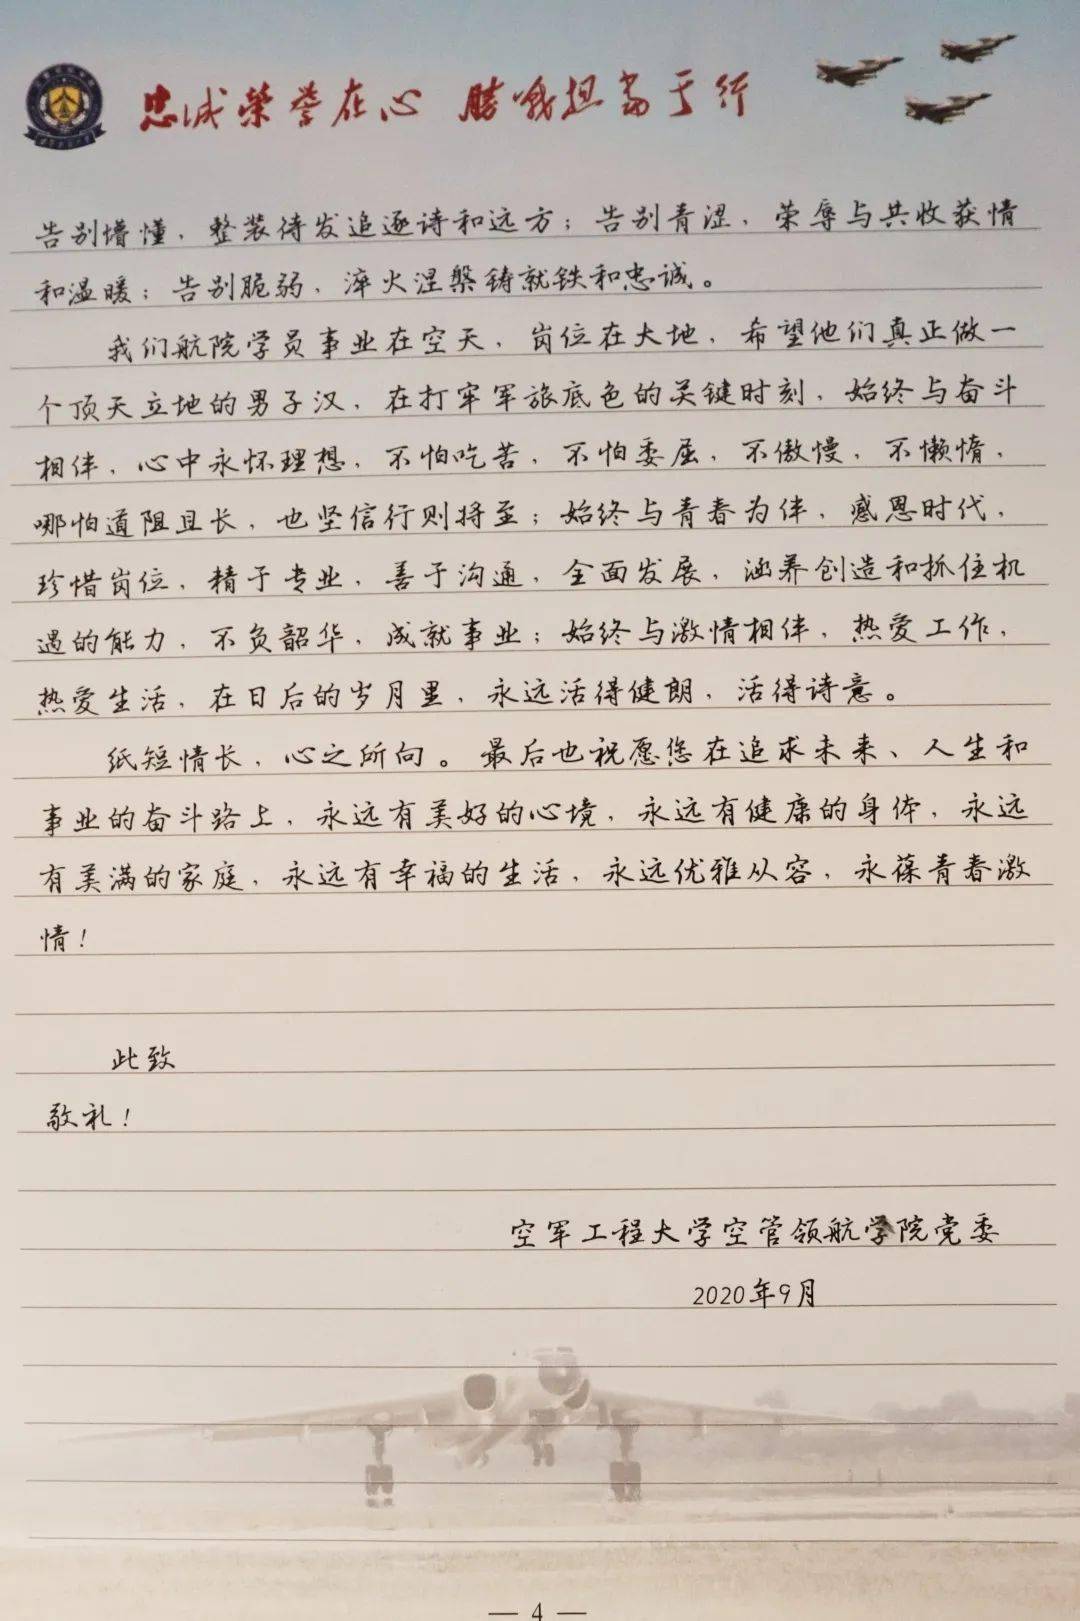 忠诚荣誉在心 胜战担当于行
告别懵懂，整装待发追逐诗和远方；告别青涩，荣辱与共收获情
和温暖；告别脆弱，淬火涅槃铸就铁和忠诚。
我们航院学员事业在空天，岗位在大地，希望他们真正做一
个顶天立地的男子汉，在打牢军旅底色的关键时刻，始终与奋斗
相伴，心中永怀理想，不怕吃苦，不怕委屈，不傲慢，不懒惰，
哪怕道阻且长，也坚信行则将至；始终与青春为伴，感恩时代，
珍惜岗位，精于专业，善于沟通，全面发展，涵养创造和抓住机
遇的能力，不负韶华，成就事业；始终与激情相伴，热爱工作，
热爱生活，在日后的岁月里，永远活得健朗，活得诗意。
纸短情长，心之所向。最后也祝愿您在追求未来、人生和
事业的奋斗路上，永远有美好的心境，永远有健康的身体，永远
有美满的家庭，永远有幸福的生活，永远优雅从容，永葆青春激
情！
此致
敬礼！
空军工程大学空管领航学院党委
2020年9月
— 4 —